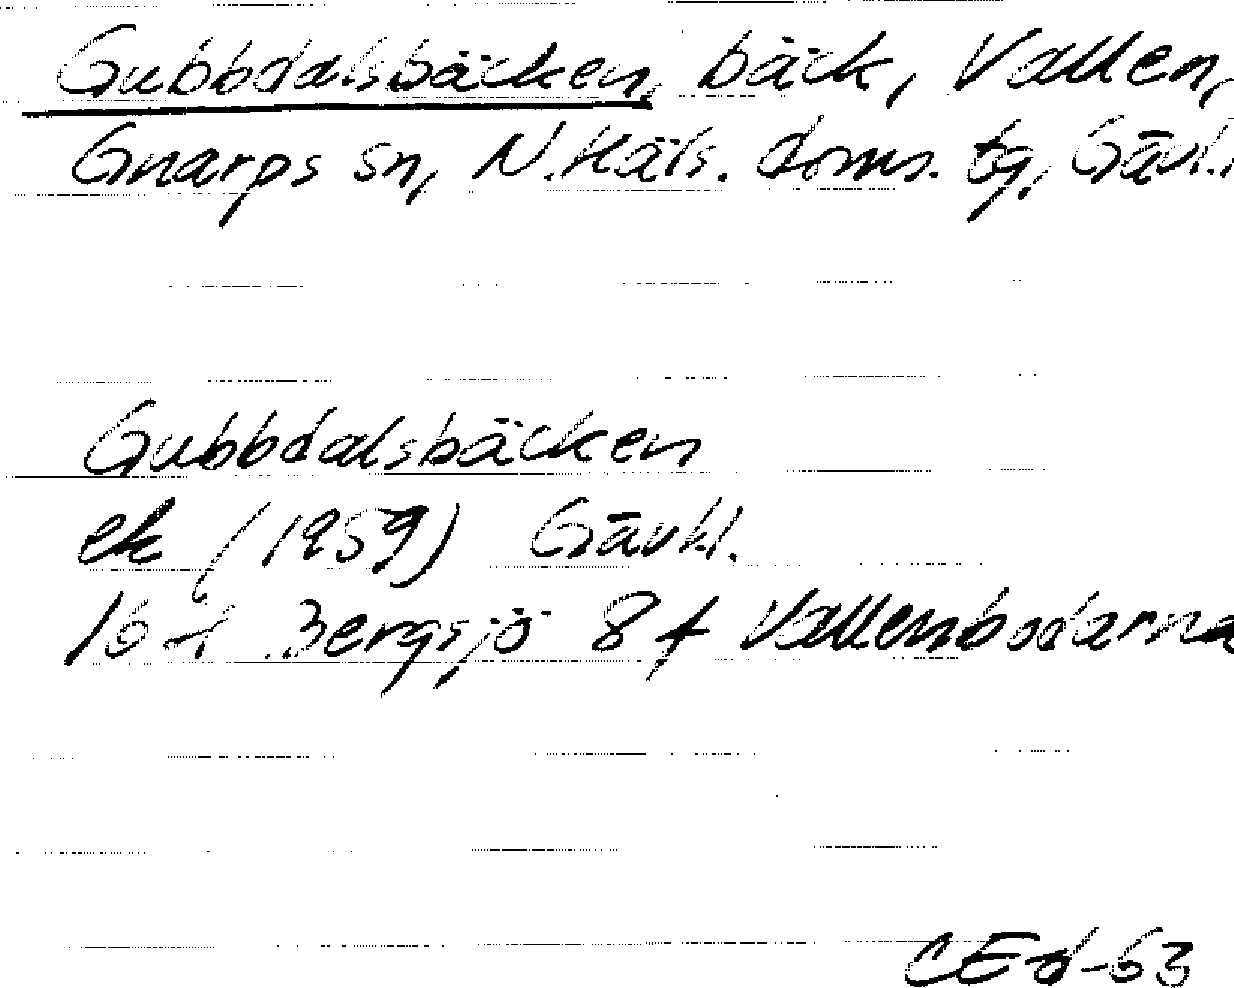 Gubbdalsbäcken, bäck, Vallen,
Gnarps sn, N. Häls. doms. tg, Gävl.
Gubbdalsbäcken
ek (1959) Gävl.
16 H Bergsjö 8 f Vallenbodarna
CEd-63